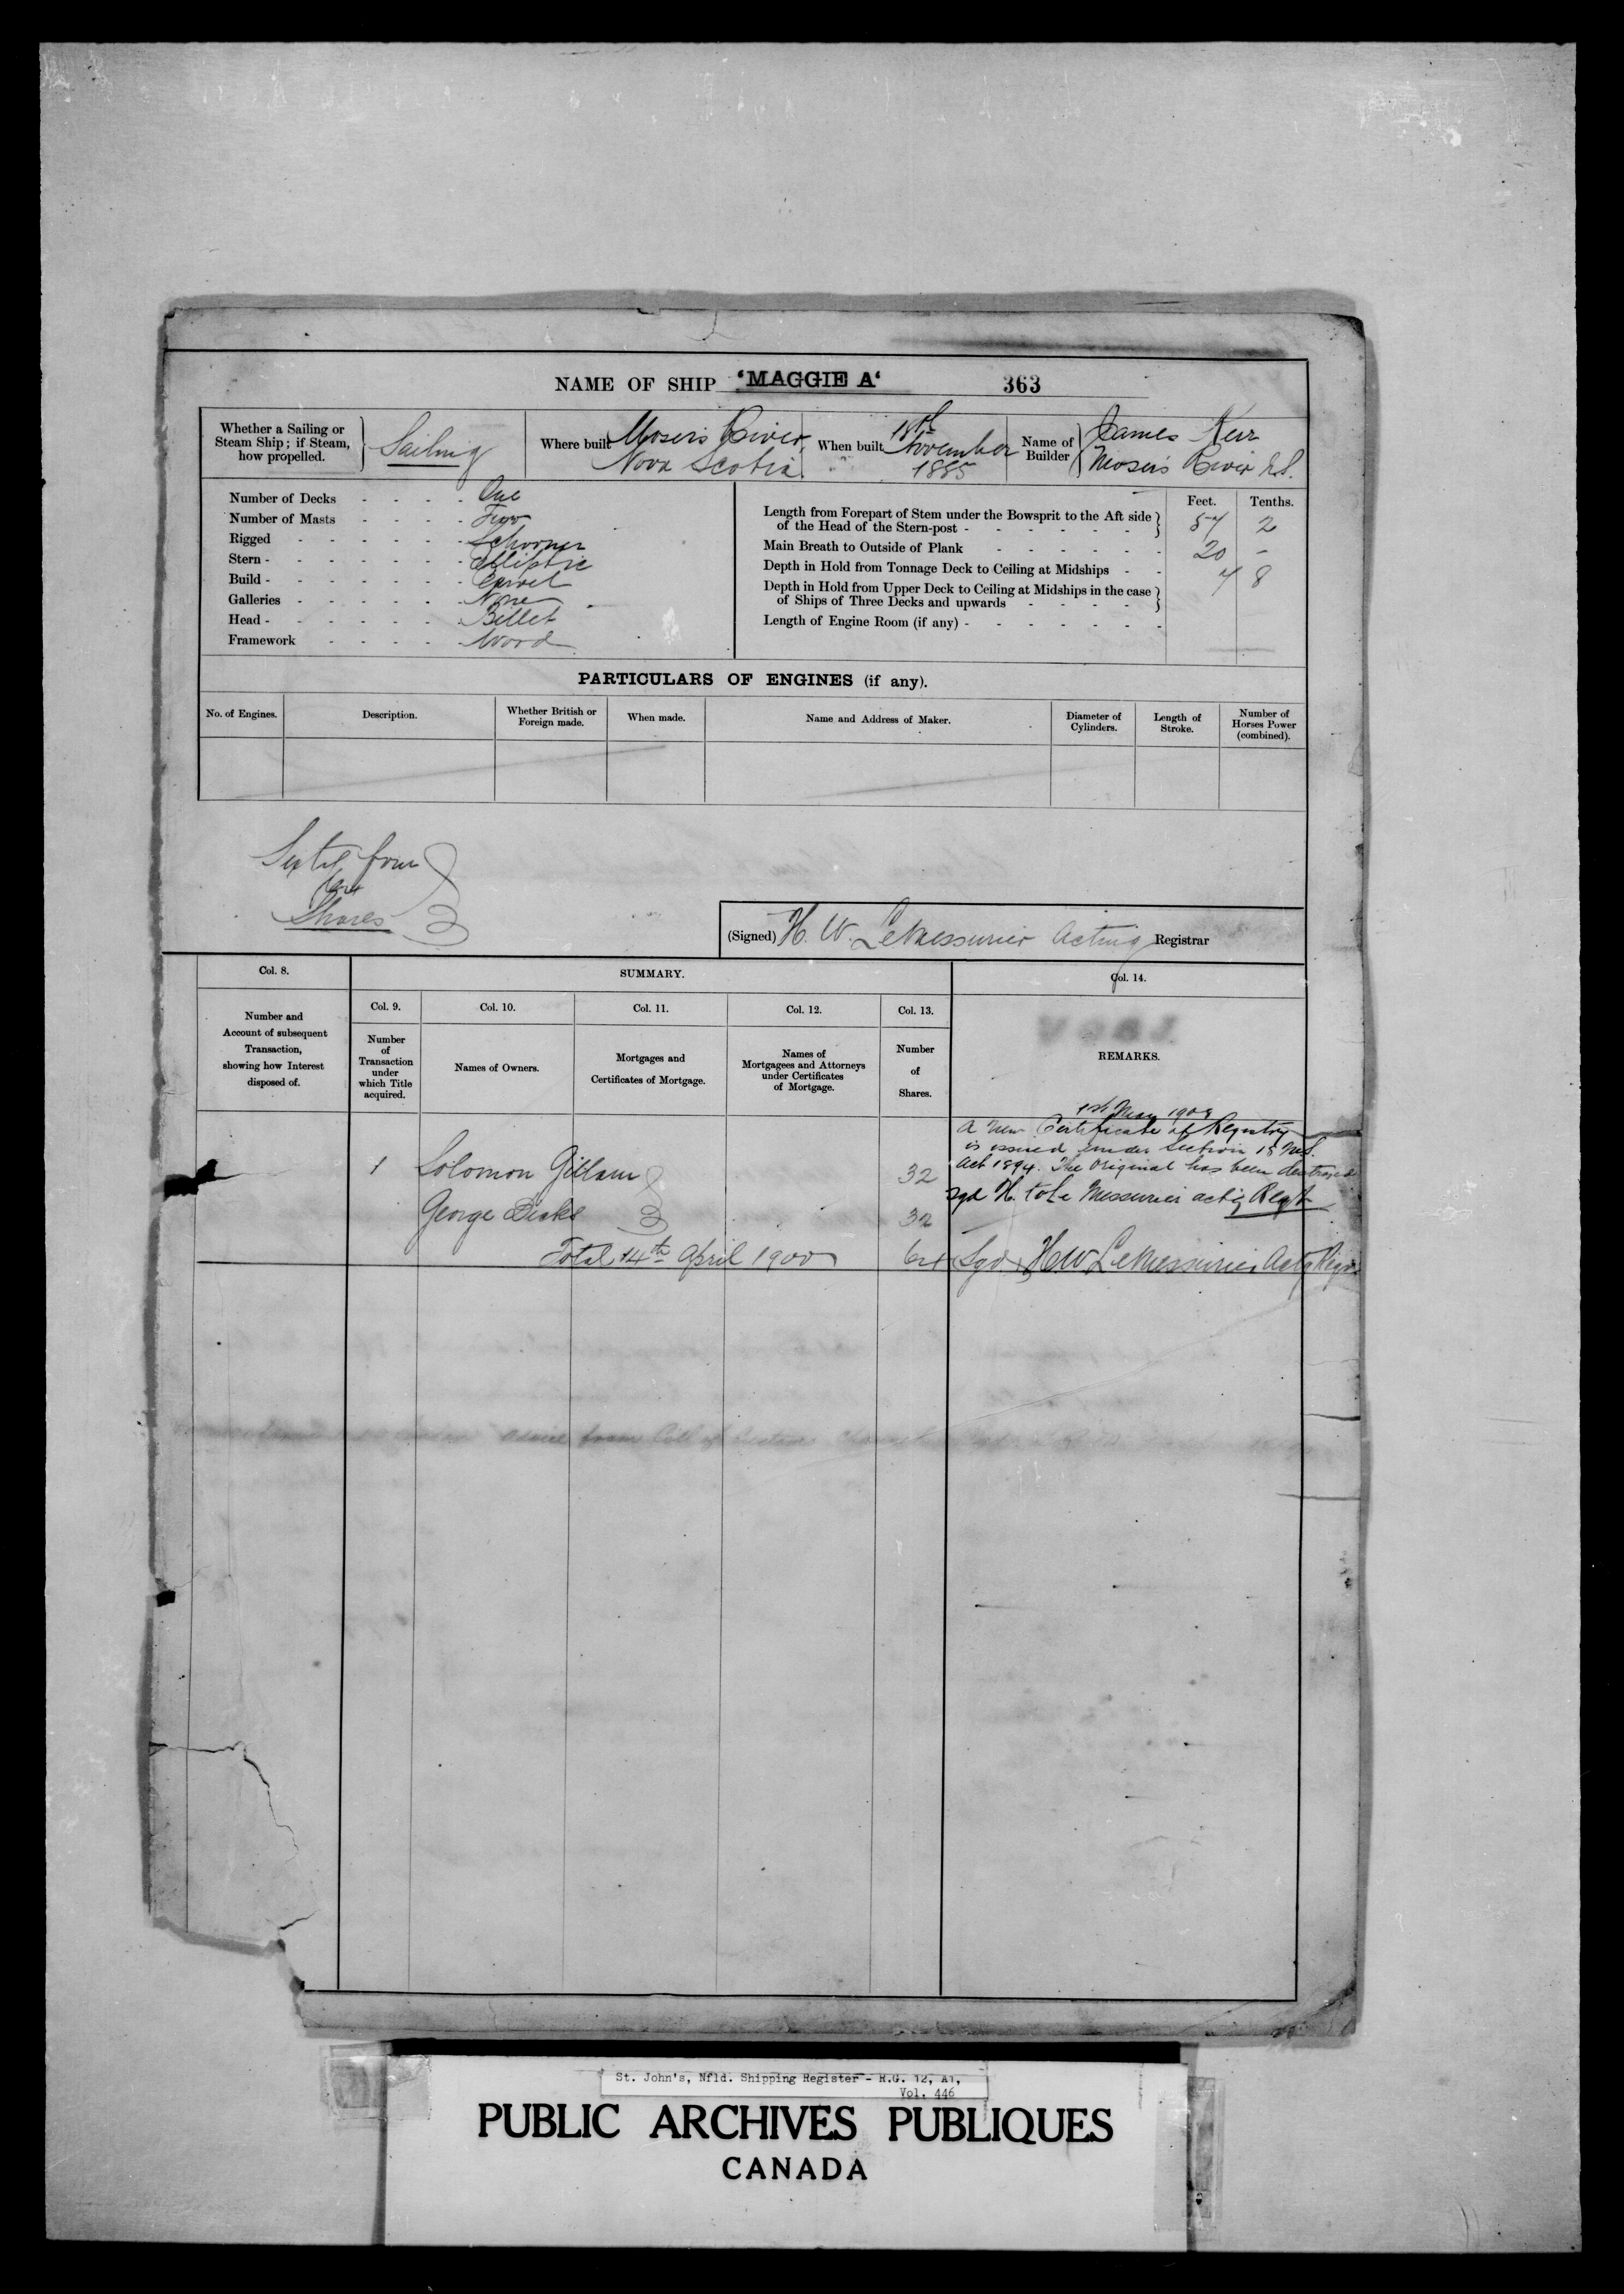 NAME OF SHIP 'MAGGIE A' 363
Whether a Sailing or Steam Ship; if Steam, how propelled. Sailing
Where built Mosers River Nova Scotia
When built 18th November 1885
Name of Builder James Kerr Mosers River N.S.
Number of Decks - - - - One
Number of Masts - - - - Two
Rigged - - - - - - Schooner
Stern - - - - - - - Elliptic
Build - - - - - - - Carvel
Galleries - - - - - - None
Head - - - - - - - Billet
Framework - - - - Wood
Feet. Tenths.
Length from Forepart of Stem under the Bowsprit to the Aft side of the Head of the Stern-post - - - - - - 57 2
Main Breath to Outside of Plank - - - - - - 20 -
Depth in Hold from Tonnage Deck to Ceiling at Midships - - 7 8
Depth in Hold from Upper Deck to Ceiling at Midships in the case of Ships of Three Decks and upwards - - - -
Length of Engine Room (if any) - - - - - - -
PARTICULARS OF ENGINES (if any).
No. of Engines.
Description.
Whether British or Foreign made.
When made.
Name and Address of Maker.
Diameter of Cylinders.
Length of Stroke.
Number of Horses Power (combined).
Sixty four
Shares
(Signed) H. W. LeMessurier Acting Registrar
Col. 8.
SUMMARY.
Col. 14.
Col. 9.
Col. 10.
Col. 11.
Col. 12.
Col. 13.
Number and Account of subsequent Transaction, showing how Interest disposed of.
Number of Transaction under which Title acquired.
Names of Owners.
Mortgages and Certificates of Mortgage.
Names of Mortgagees and Attorneys under Certificates of Mortgage.
Number of Shares.
REMARKS.
1st May 1908
A new Certificate of Registry
is issued under Section 15 M.S.
Act 1894. The Original has been destroyed
Sgd H. W LeMessurier actg Regr
1 Solomon Gillam 32
George Dicks 32
Total 14th April 1900 64 Sgd HW LeMessurier Actg Regr
advice from Coll of
St. John's, Nfld. Shipping Register - R.G. 12, A1,
Vol. 446
PUBLIC ARCHIVES PUBLIQUES
CANADA